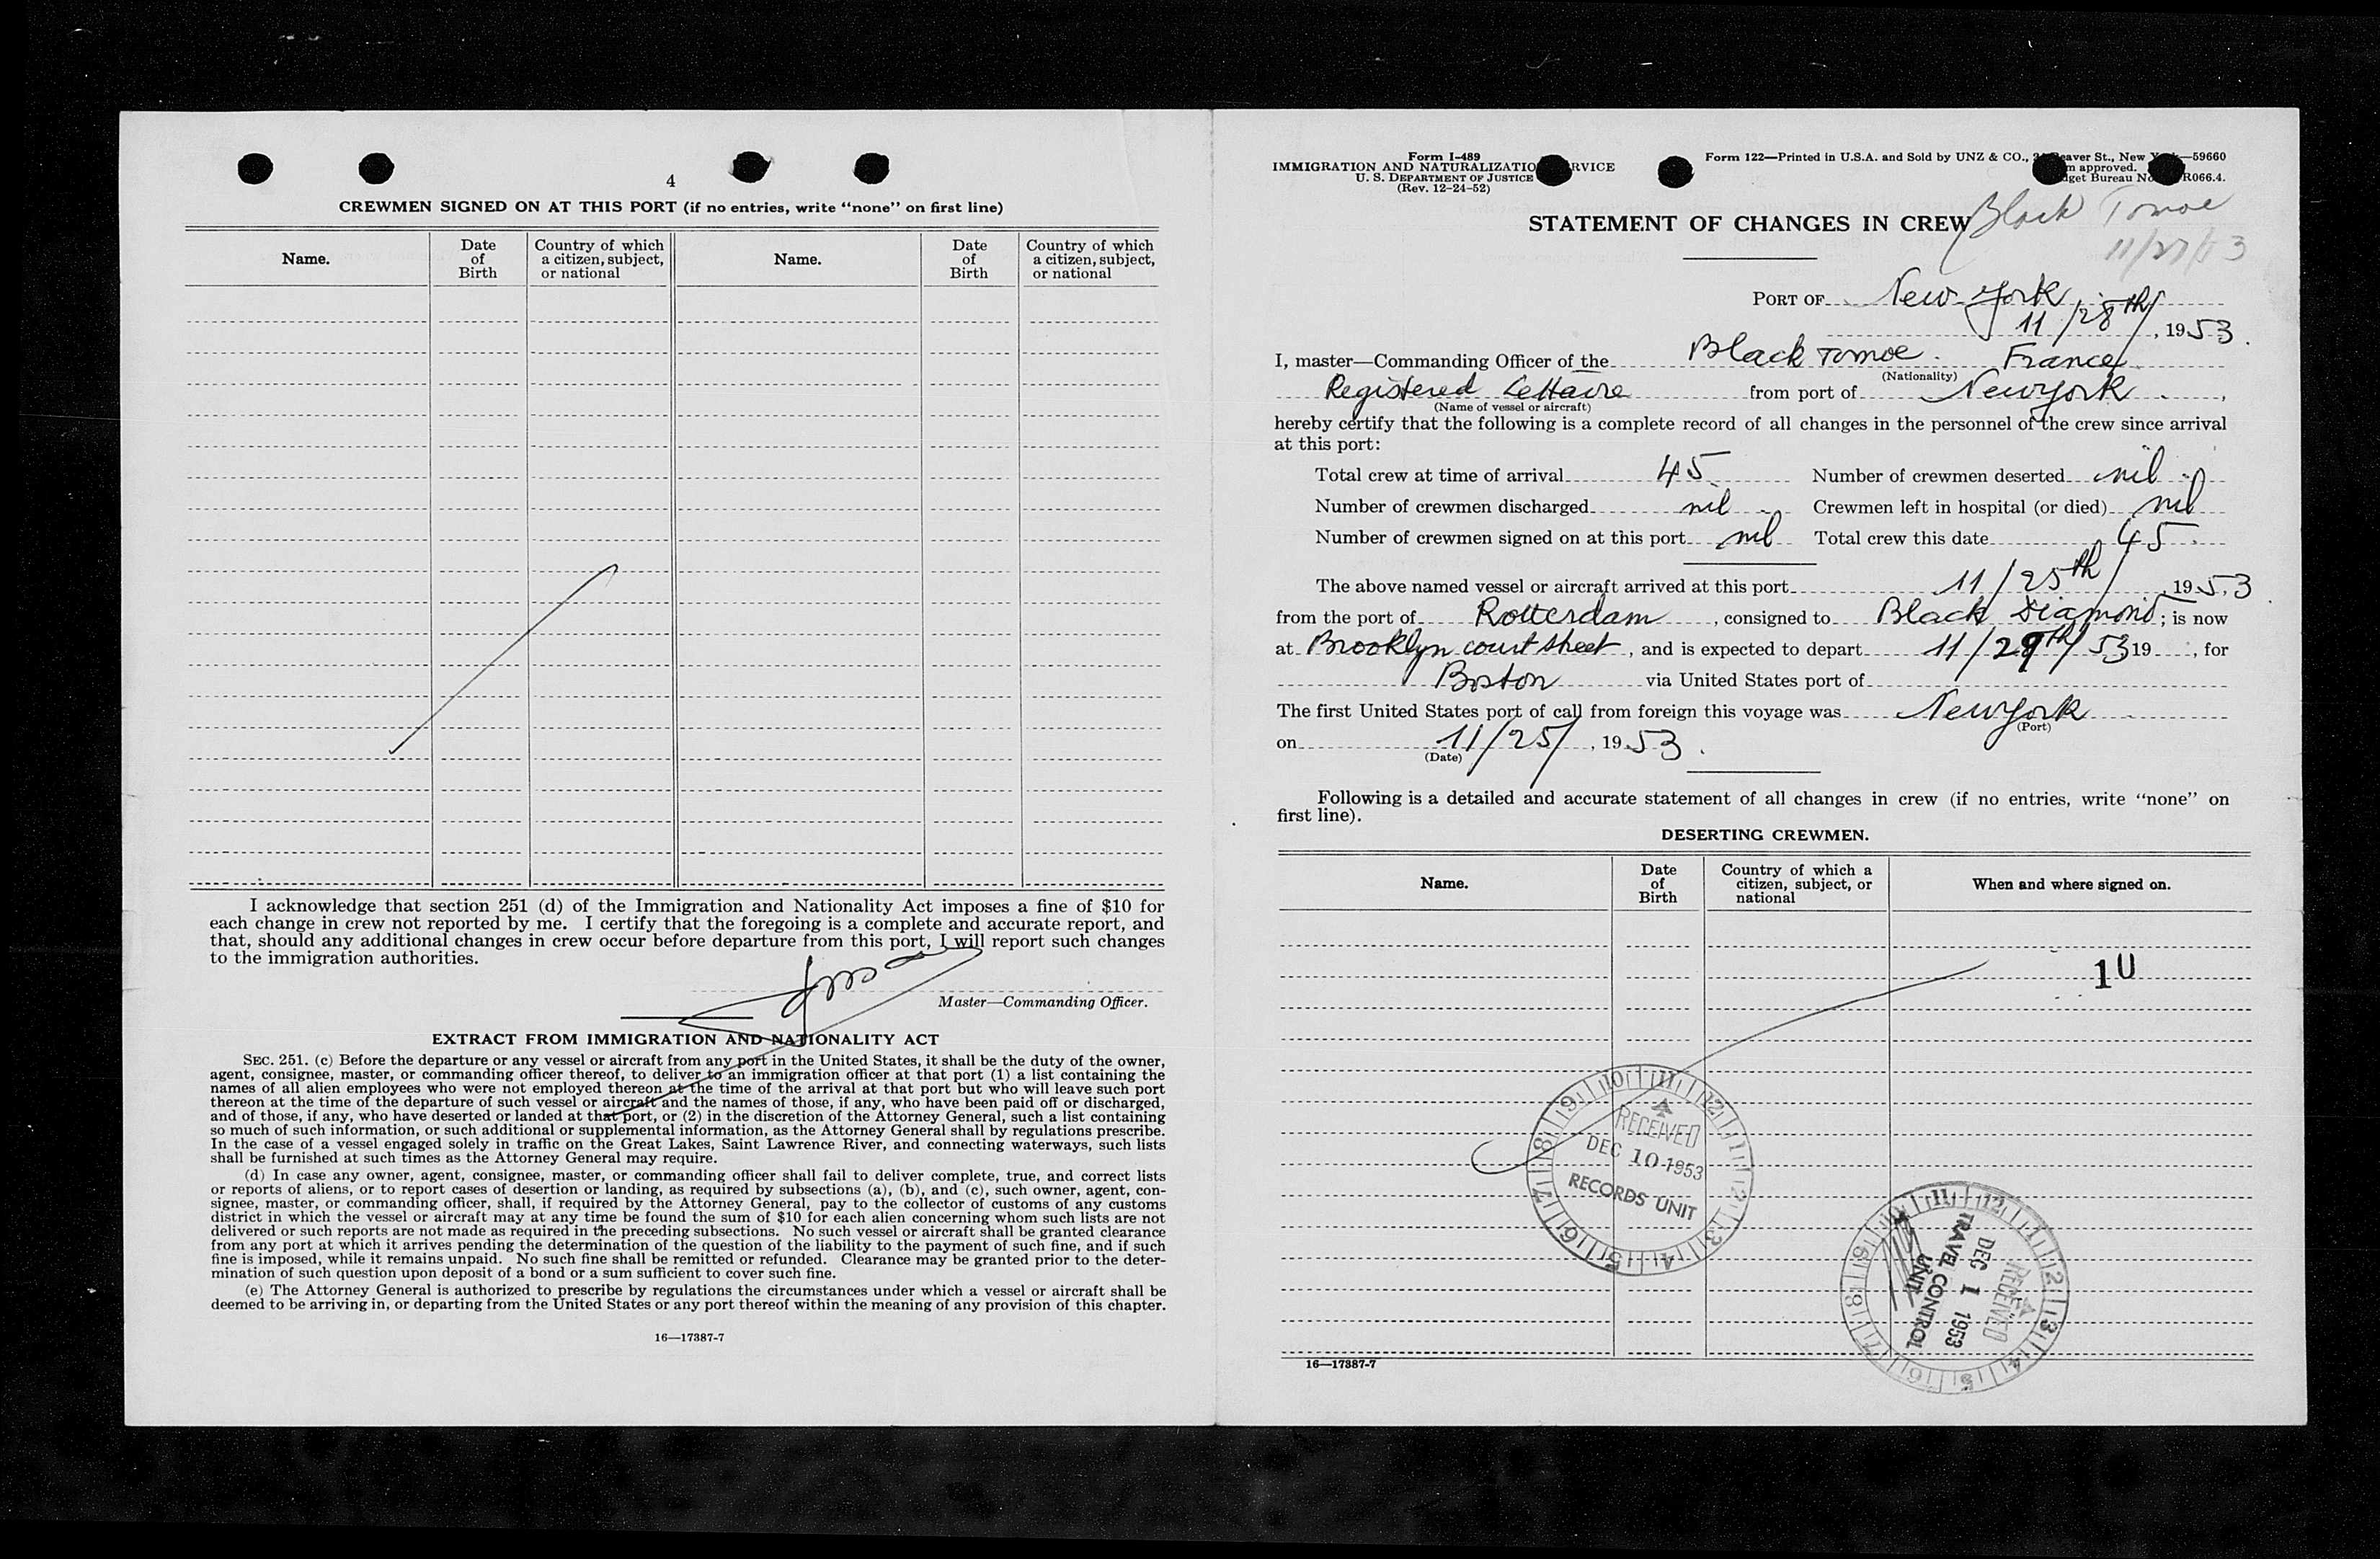 4
CREWMEN SIGNED ON AT THIS PORT (if no entries, write “none” on first line)
Name.
Date of Birth
Country of which a citizen, subject, or national
Name.
Date of Birth
Country of which a citizen, subject, or national
I acknowledge that section 251 (d) of the Immigration and Nationality Act imposes a fine of $10 for
each change in crew not reported by me. I certify that the foregoing is a complete and accurate report, and
that, should any additional changes in crew occur before departure from this port, I will report such changes
to the immigration authorities.
Master—Commanding Officer.
EXTRACT FROM IMMIGRATION AND NATIONALITY ACT
SEC. 251. (c) Before the departure or any vessel or aircraft from any port in the United States, it shall be the duty of the owner,
agent, consignee, master, or commanding officer thereof, to deliver to an immigration officer at that port (1) a list containing the
names of all alien employees who were not employed thereon at the time of the arrival at that port but who will leave such port
thereon at the time of the departure of such vessel or aircraft and the names of those, if any, who have been paid off or discharged,
and of those, if any, who have deserted or landed at that port, or (2) in the discretion of the Attorney General, such a list containing
so much of such information, or such additional or supplemental information, as the Attorney General shall by regulations prescribe.
In the case of a vessel engaged solely in traffic on the Great Lakes, Saint Lawrence River, and connecting waterways, such lists
shall be furnished at such times as the Attorney General may require.
(d) In case any owner, agent, consignee, master, or commanding officer shall fail to deliver complete, true, and correct lists
or reports of aliens, or to report cases of desertion or landing, as required by subsections (a), (b), and (c), such owner, agent, con-
signee, master, or commanding officer, shall, if required by the Attorney General, pay to the collector of customs of any customs
district in which the vessel or aircraft may at any time be found the sum of $10 for each alien concerning whom such lists are not
delivered or such reports are not made as required in the preceding subsections. No such vessel or aircraft shall be granted clearance
from any port at which it arrives pending the determination of the question of the liability to the payment of such fine, and if such
fine is imposed, while it remains unpaid. No such fine shall be remitted or refunded. Clearance may be granted prior to the deter-
mination of such question upon deposit of a bond or a sum sufficient to cover such fine.
(e) The Attorney General is authorized to prescribe by regulations the circumstances under which a vessel or aircraft shall be
deemed to be arriving in, or departing from the United States or any port thereof within the meaning of any provision of this chapter.
16—17387-7
Form I-489
IMMIGRATION AND NATURALIZATIO RVICE
U. S. DEPARTMENT OF JUSTICE
(Rev. 12-24-52)
Form 122—Printed in U.S.A. and Sold by UNZ & CO., eaver St., New Y —59660
approved.
get Bureau No R066.4.
STATEMENT OF CHANGES IN CREW
Black Tomoe
11/27/53
PORT OF New York
11/28th/, 1953.
I, master—Commanding Officer of the Black Tomoe. France
(Nationality)
Registered LeHavre from port of Newyork.,
(Name of vessel or aircraft)
hereby certify that the following is a complete record of all changes in the personnel of the crew since arrival
at this port:
Total crew at time of arrival 45 Number of crewmen deserted nil
Number of crewmen discharged nil Crewmen left in hospital (or died) nil
Number of crewmen signed on at this port nil Total crew this date 45
The above named vessel or aircraft arrived at this port 11/25th/ 1953.
from the port of Rotterdam, consigned to Black Diamond; is now
at Brooklyn court street, and is expected to depart 11/29th/53 19 , for
Boston via United States port of
The first United States port of call from foreign this voyage was Newyork
(Port)
on 11/25/, 1953.
(Date)
Following is a detailed and accurate statement of all changes in crew (if no entries, write “none” on
first line).
DESERTING CREWMEN.
Name.
Date of Birth
Country of which a citizen, subject, or national
When and where signed on.
10
10 11 12 1 2 3 4 5 6 7 8 9
RECEIVED
DEC 10 1953
RECORDS UNIT
11 12 1 2 3 4 5 6 7 8 9 10
RECEIVED
DEC 1 1953
TRAVEL CONTROL
UNIT
16—17387-7